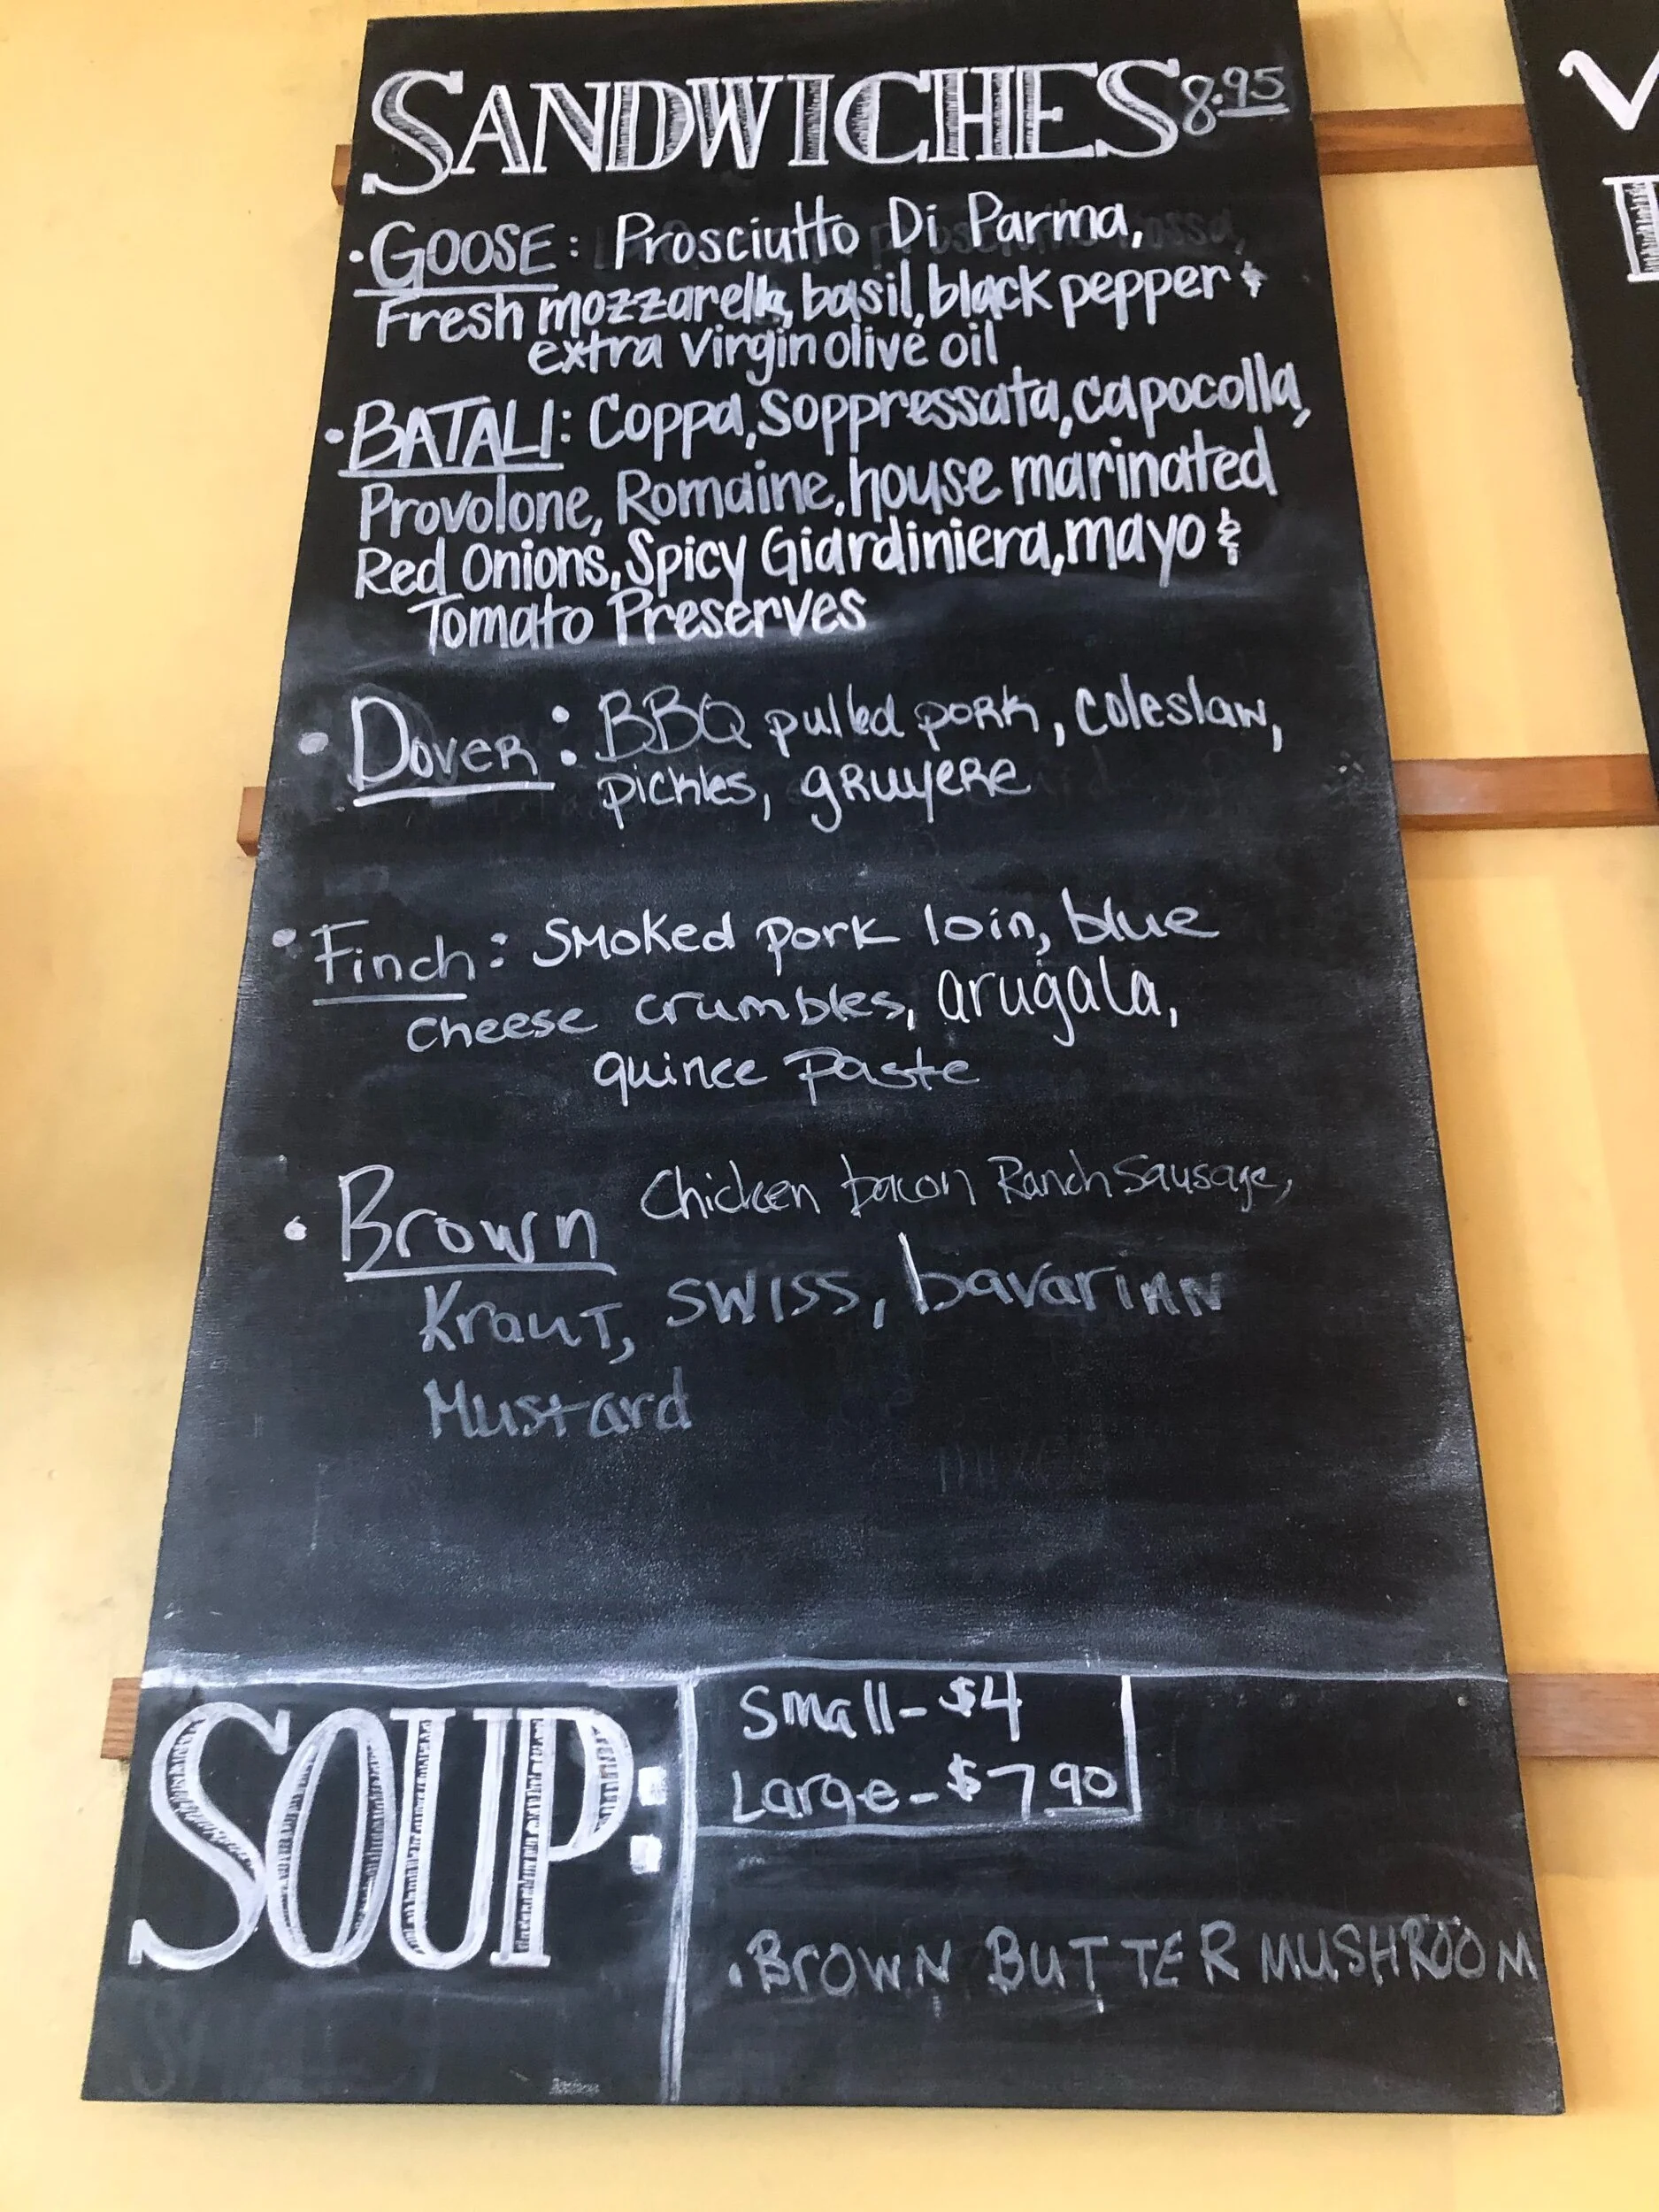 SANDWICHES 8.95
• GOOSE: Prosciutto Di Parma,
Fresh mozzarella, basil, black pepper &
extra virgin olive oil
• BATALI: Coppa, Soppressata, capocolla,
Provolone, Romaine, house marinated
Red Onions, Spicy Giardiniera, mayo &
Tomato Preserves
• DOVER: BBQ pulled pork, coleslaw,
pickles, gruyere
• Finch: Smoked pork loin, blue
cheese crumbles, arugala,
quince paste
• Brown Chicken bacon Ranch Sausage,
Kraut, SWISS, bavarian
Mustard
SOUP:
Small - $4
Large - $7 90
• BROWN BUTTER MUSHROOM